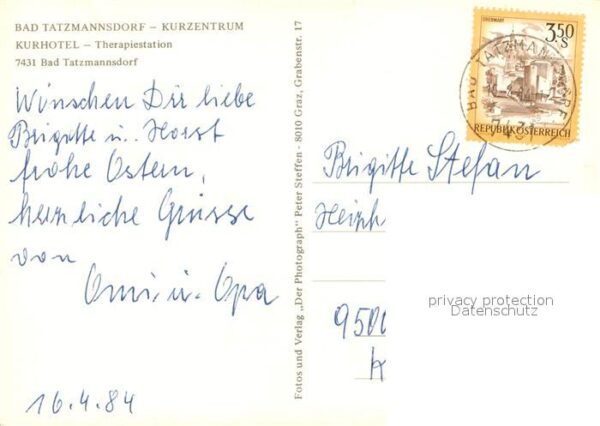 BAD TATZMANNSDORF – KURZENTRUM
KURHOTEL – Therapiestation
7431 Bad Tatzmannsdorf
Wünschen Dir liebe
Brigitte u. Horst
frohe Ostern,
herzliche Grüsse
von
Omi u. Opa
16.4.84
Fotos und Verlag „Der Photograph" Peter Steffen - 8010 Graz, Grabenstr. 17
3.50
S
REPUBLIK ÖSTERREICH
BAD TATZMANNSDORF
7431
Brigitte Stefan
950
privacy protection
Datenschutz